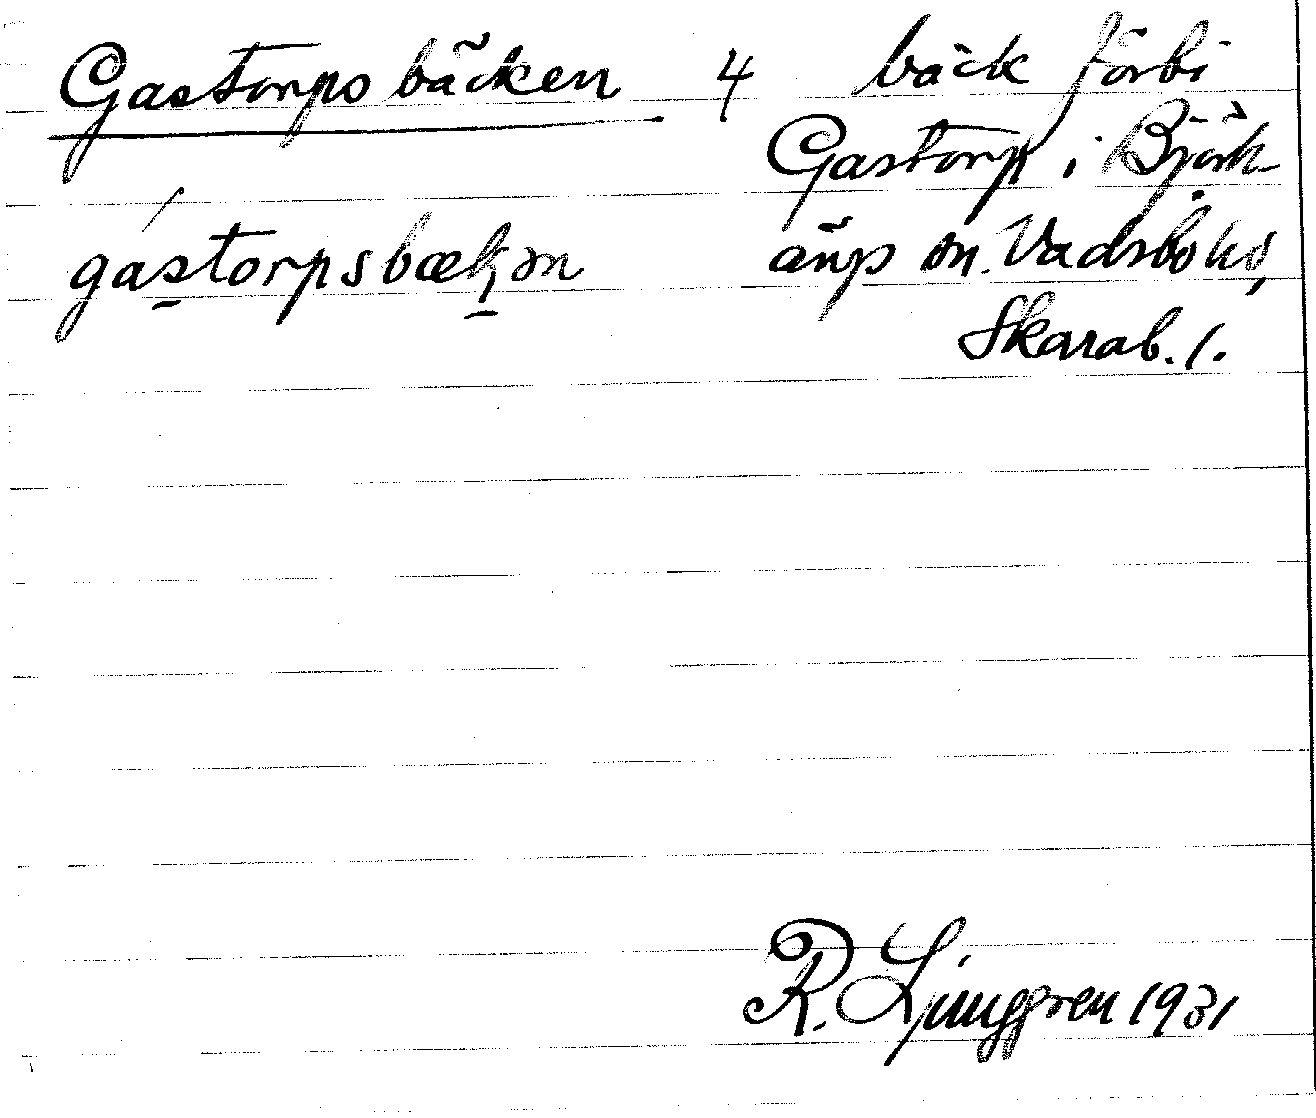 Gastorpsbäcken 4 bäck förbi
Gastorp i Björk-
gástorpsbækən ängs sn. Vadsbo hd,
Skarab. l.
R. Ljunggren 1931